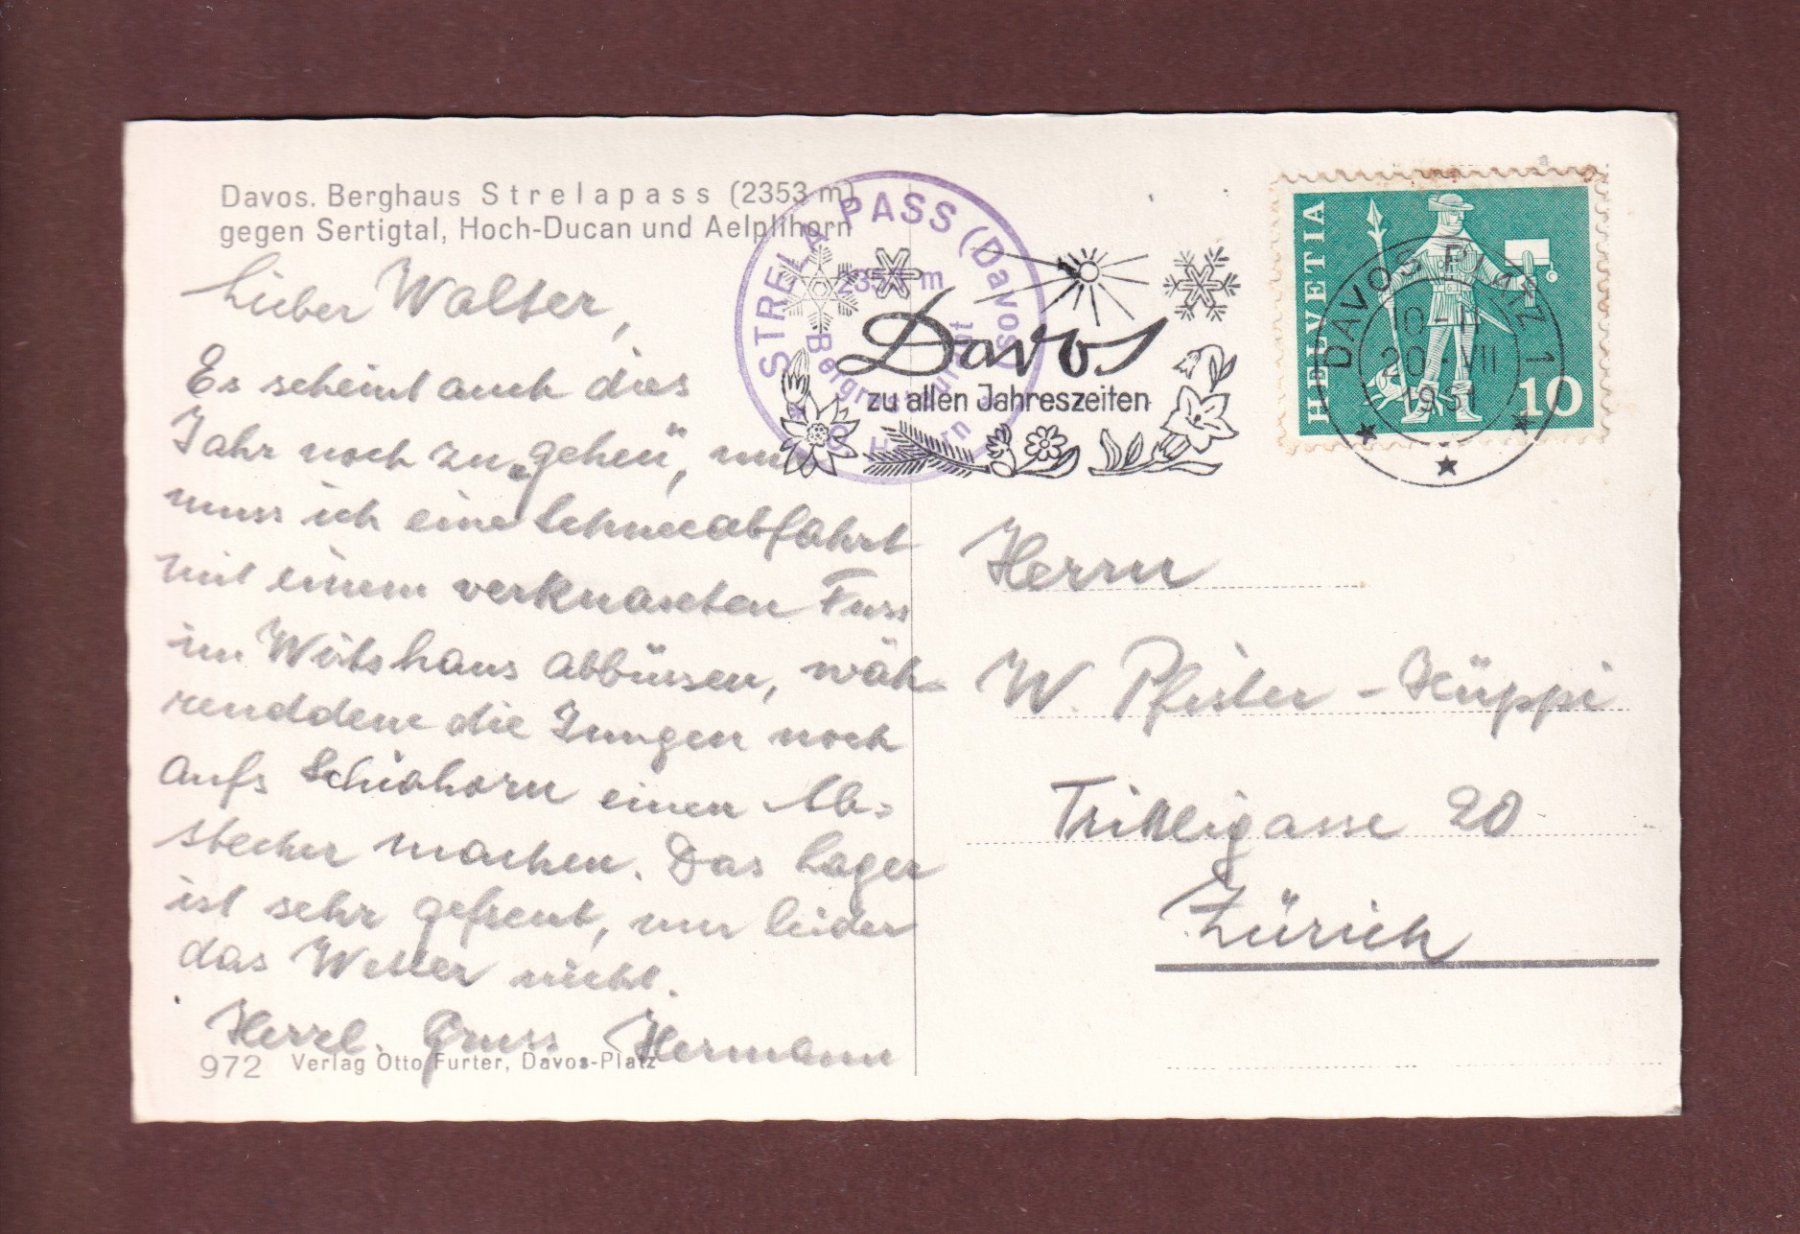 Davos. Berghaus Strelapass (2353 m)
gegen Sertigtal, Hoch-Ducan und Aelplihorn
Lieber Walter,
Es scheint auch dies
Jahr noch zu „gehen", nur
muss ich eine Schneeabfahrt
mit einem verknaxten Fuss
im Wirtshaus abbüssen, wäh-
renddem die Jungen noch
aufs Schiahorn einen Ab-
stecher machen. Das Lager
ist sehr gefreut, nur leider
das Wetter nicht.
Herzl. Gruss Hermann
972 Verlag Otto Furter, Davos-Platz
STRELA PASS (Davos)
m
Davos
zu allen Jahreszeiten
HELVETIA
10
DAVOS PLATZ 1
20.-VII
1961
Herrn
W. Pfister-Küppi
Trittligasse 20
Zürich